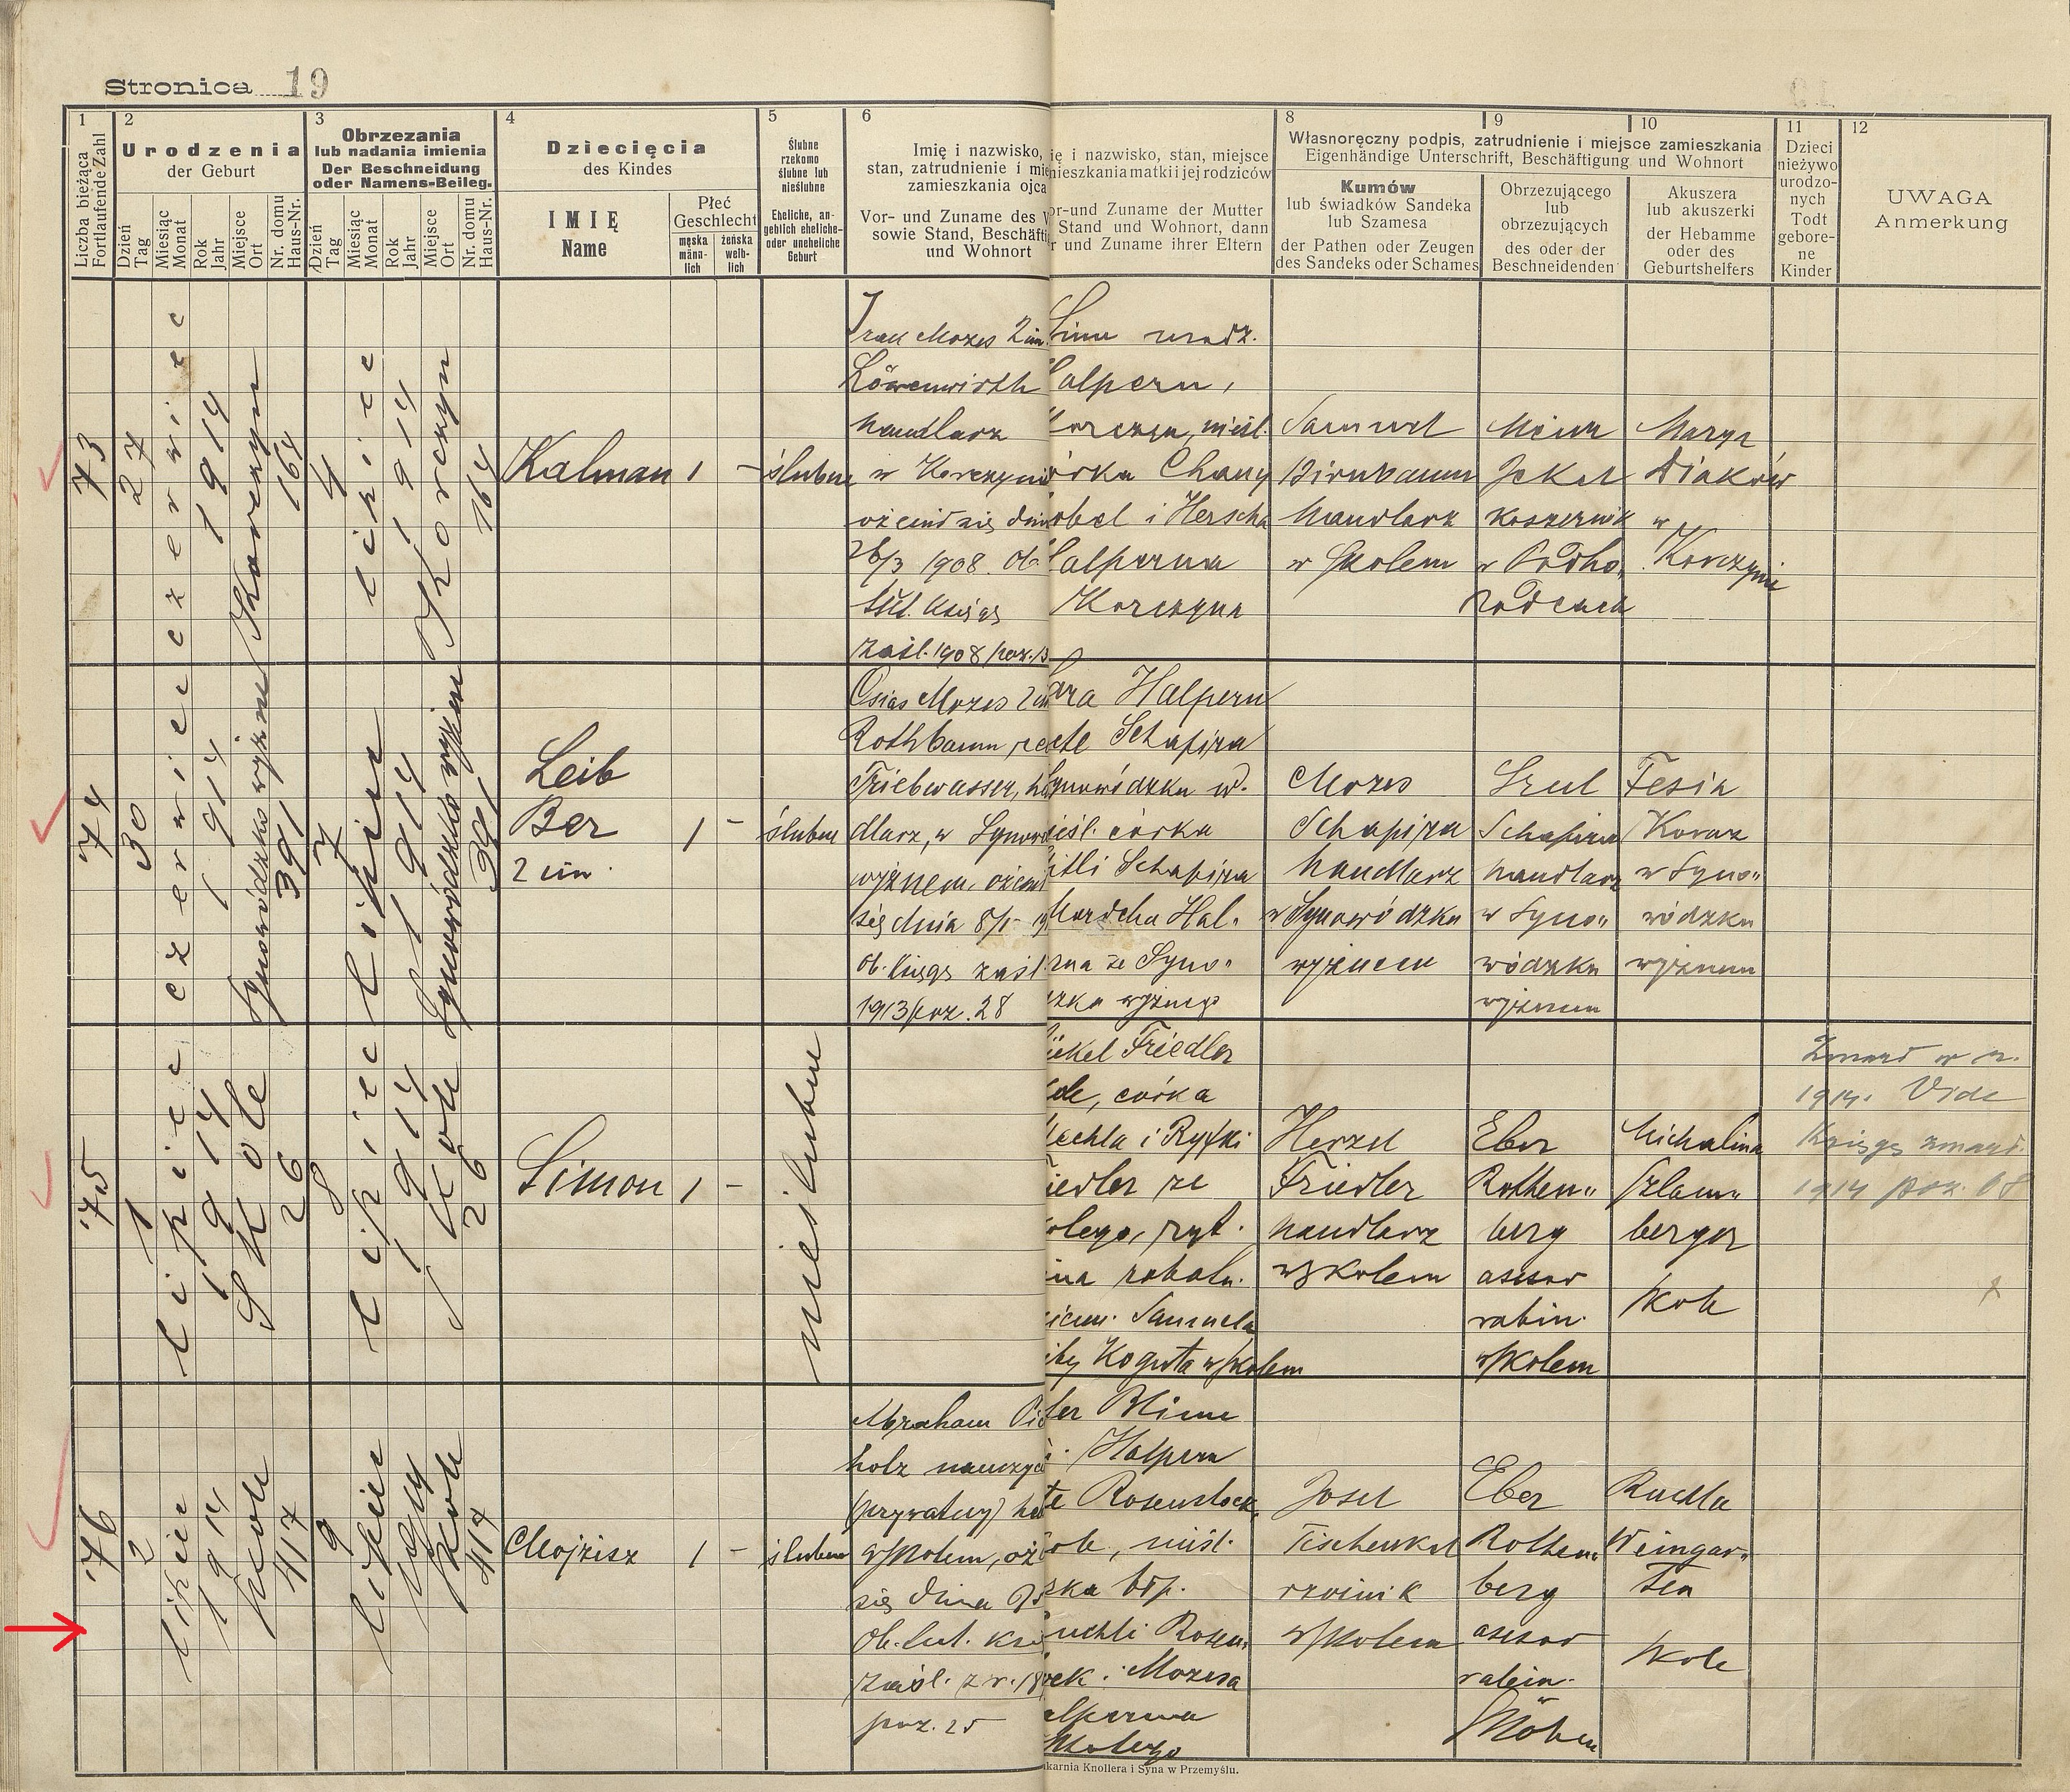 Stronica 19
1
Liczba bieżąca
Fortlaufende Zahl
2
Urodzenia
der Geburt
Dzień
Tag
Miesiąc
Monat
Rok
Jahr
Miejsce
Ort
Nr. domu
Haus-Nr.
3
Obrzezania
lub nadania imienia
Der Beschneidung
oder Namens-Beileg.
Dzień
Tag
Miesiąc
Monat
Rok
Jahr
Miejsce
Ort
Nr. domu
Haus-Nr.
4
Dziecięcia
des Kindes
IMIĘ
Name
Płeć
Geschlecht
męska
männ-
lich
żeńska
weib-
lich
5
Ślubne
rzekomo
ślubne lub
nieślubne
Eheliche, an-
geblich eheliche-
oder uneheliche
Geburt
6
Imię i nazwisko,
stan, zatrudnienie i mie
zamieszkania ojca
Vor- und Zuname des V
sowie Stand, Beschäfti
und Wohnort
ię i nazwisko, stan, miejsce
nieszkania matki i jej rodziców
or- und Zuname der Mutter
Stand und Wohnort, dann
r und Zuname ihrer Eltern
8
9
10
Własnoręczny podpis, zatrudnienie i miejsce zamieszkania
Eigenhändige Unterschrift, Beschäftigung und Wohnort
Kumów
lub świadków Sandeka
lub Szamesa
der Pathen oder Zeugen
des Sandeks oder Schames
Obrzezującego
lub
obrzezujących
des oder der
Beschneidenden
Akuszera
lub akuszerki
der Hebamme
oder des
Geburtshelfers
11
Dzieci
nieżywo
urodzo-
nych
Todt
gebore-
ne
Kinder
12
UWAGA
Anmerkung
73
27
czerwiec
1914
Korczyn
164
4
lipiec
1914
Korczyn
164
Kalman
1
-
ślubne
Mozes 2 im.
Löwenwirth
handlarz
w Korczynie
ożenił się dnia
26/3 1908 ob.
tut. księgę
zaśl. 1908 poz. 13
urodz.
alpern,
orczyn, nieśl.
órka Chany
obel i Herscha
alperna
Korczyna
Samuel
Birnbaum
handlarz
w Skolem
Jekel
koszernik
w Podho,
rodcach
Marya
Diaków
w
Korczynie
74
30
czerwiec
1914
Synowódzko wyżne
391
7
lipiec
1914
Synowódzko wyżne
391
Leib
Ber
2 im.
1
-
ślubne
Osias Mozes 2 im
Rothbaum, re
Triebwasser, ha
dlarz, w Synow
wyżnem, ożenił
się dnia 8/1 19
ob. księgę zaśl
1913 poz. 28
ara Halpern
cte Schapira
ynowódzku w.
ieśl. córka
itli Schapira
Mordcha Hal„
rna ze Syno„
zka wyżnego
Mozes
Schapira
handlarz
w Synowódzku
wyżnem
Srul
Schapira
handlarz
w Syno„
wódzku
wyżnem
Tesia
Koraz
w Syno„
wódzku
wyżnem
75
1
lipiec
1914
Skole
26
8
lipiec
1914
Skole
26
Simon
1
-
nieślubne
ückel Friedler
ole, córka
echla i Ryfki
iedler ze
olego, ryt.
Samuela
iby Koguta w Skolem
Herzel
Friedler
handlarz
w Skolem
Eber
Rothen„
berg
asesor
rabin.
w Skolem
Michalina
Szlam„
berger
Skole
Zmarł w r.
1914. Vide
Księgę zmarł.
1914 poz. 68
76
2
lipiec
1914
Skole
417
9
lipiec
1914
Skole
417
Mojżisz
1
-
ślubne
Abraham Pi
holz nauczyc
(prywatny)
w Skolem, oż
się dnia
ob. tut. księ
zaśl. z r. 18
poz. 25
ter Blime
Halpern
te Rosenstock
ole, nieśl.
uchli Rosen„
ock i Mozesa
alperna
Skolego
Josel
Tischenkel
rzeźnik
w Skolem
Eber
Rothen„
berg
asesor
rabin.
w Skolem
Ruchla
Weingar„
ten
Skole
karnia Knollera i Syna w Przemyślu.